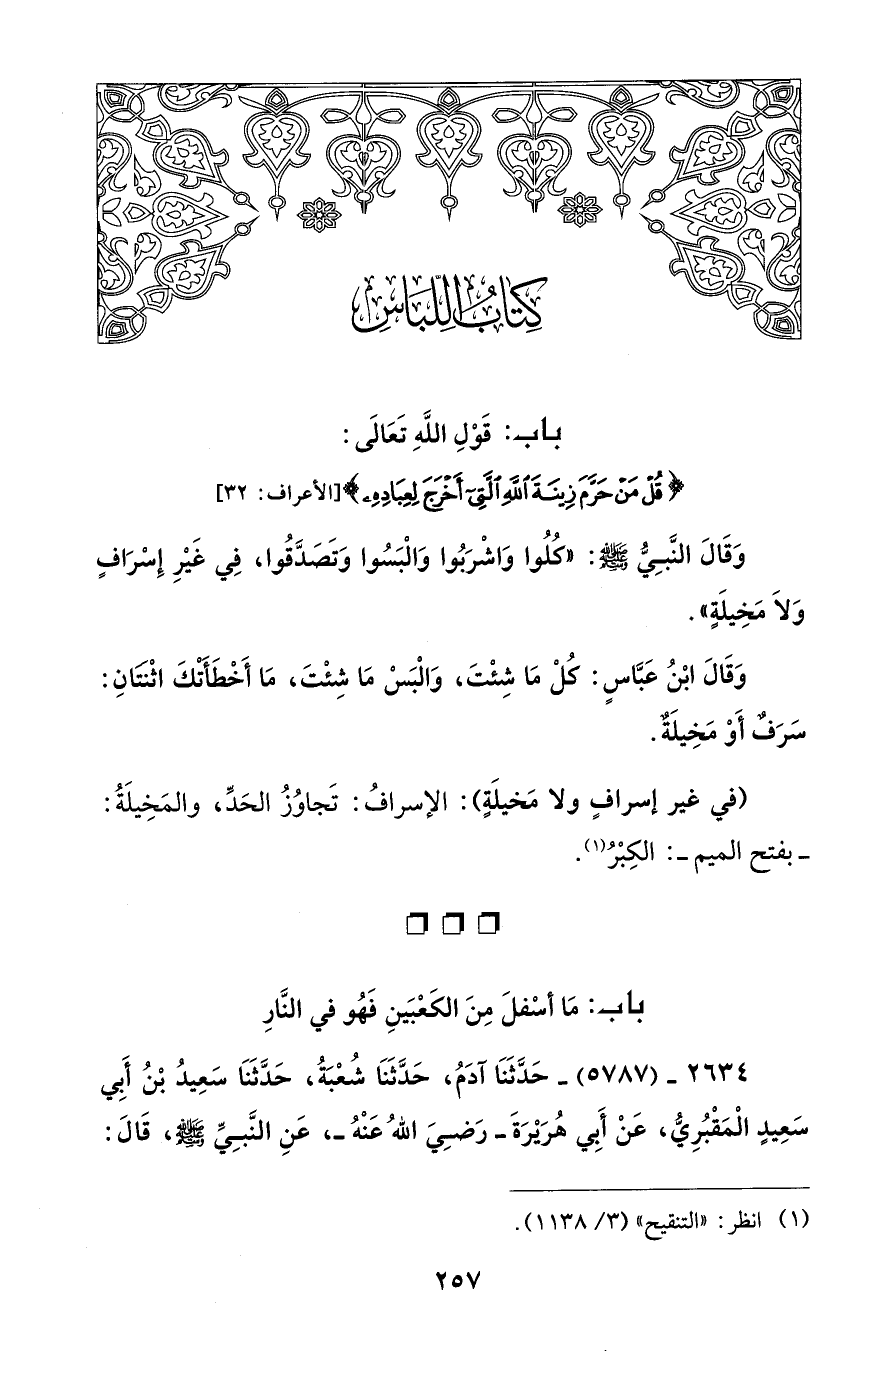 كِتَابُ اللِّبَاسِ
باب: قَوْلِ اللَّهِ تَعَالَى:
﴿قُلْ مَنْ حَرَّمَ زِينَةَ ٱللَّهِ ٱلَّتِىٓ أَخْرَجَ لِعِبَادِهِۦ﴾ [الأعراف: ٣٢]
وَقَالَ النَّبِيُّ ﷺ: «كُلُوا وَاشْرَبُوا وَالْبَسُوا وَتَصَدَّقُوا، فِي غَيْرِ إِسْرَافٍ
وَلاَ مَخِيلَةٍ».
وَقَالَ ابْنُ عَبَّاسٍ: كُلْ مَا شِئْتَ، وَالْبَسْ مَا شِئْتَ، مَا أَخْطَأَتْكَ اثْنَتَانِ:
سَرَفٌ أَوْ مَخِيلَةٌ.
(في غير إسرافٍ ولا مَخيلَةٍ): الإسرافُ: تَجاوُزُ الحَدِّ، والمَخِيلَةُ:
ـ بفتح الميم ـ: الكِبْرُ(١).
باب: مَا أسْفلَ مِنَ الكَعْبَينِ فَهُو في النَّارِ
٢٦٣٤ ـ (٥٧٨٧) ـ حَدَّثَنَا آدَمُ، حَدَّثَنَا شُعْبَةُ، حَدَّثَنَا سَعِيدُ بْنُ أَبِي
سَعِيدٍ الْمَقْبُرِيُّ، عَنْ أَبِي هُرَيْرَةَ ـ رَضِيَ اللهُ عَنْهُ ـ، عَنِ النَّبِيِّ ﷺ، قَالَ:
(١) انظر: «التنقيح» (٣/ ١١٣٨).
٢٥٧